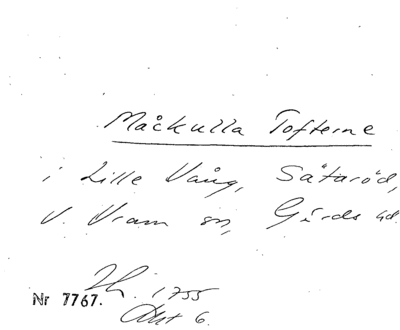 Måckulla Tofterne
i Lille Vång, Sätaröd,
V. Vram sn, Gärds hd.
1755
Nr 7767.
Akt 6.